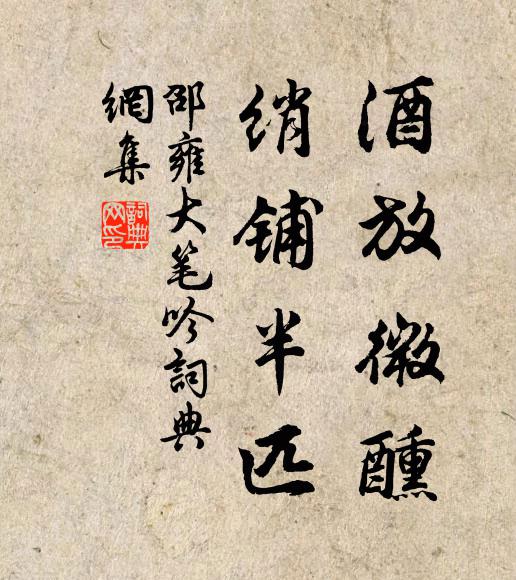 酒放微醺
绡铺半匹
邵雍大笔吟詞典
網集
詞典网印